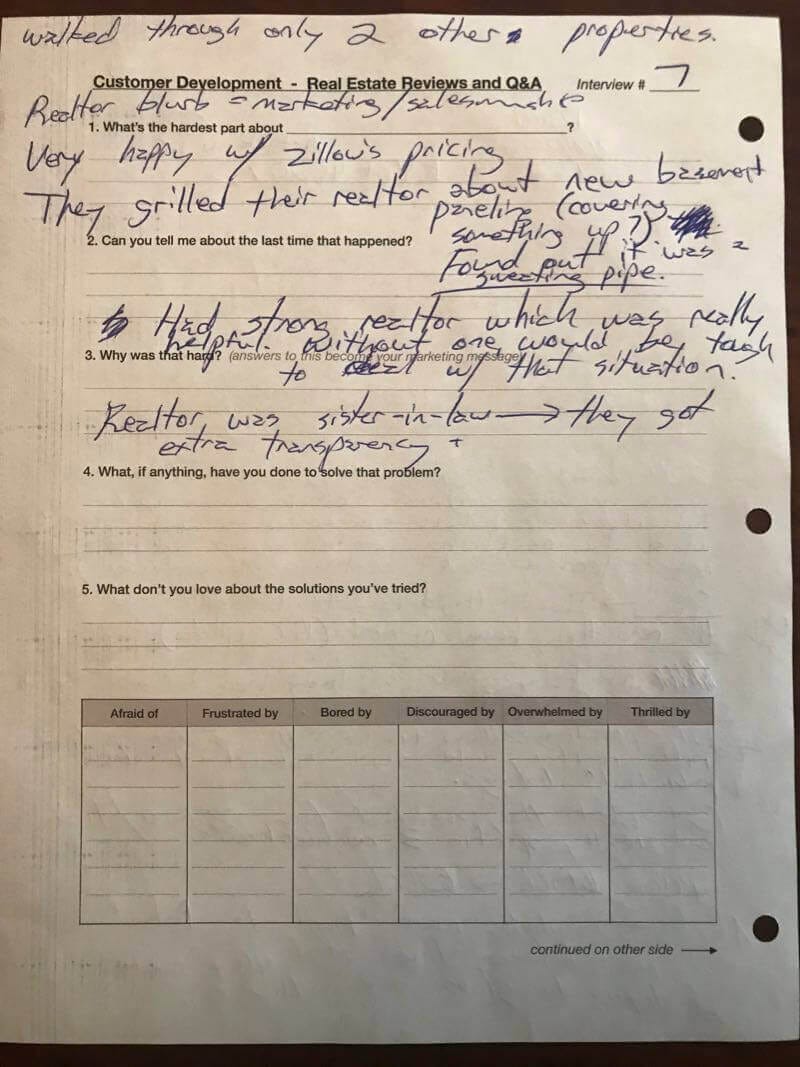 walked through only 2 others properties.
Customer Development - Real Estate Reviews and Q&A Interview # 7
Realtor blurb = marketing/salesmanship
1. What's the hardest part about ____________________?
Very happy w/ zillow's pricing
They grilled their realtor about new basement
paneling (covering
something up?)
2. Can you tell me about the last time that happened?
Found out it was a
sweating pipe.
Had strong realtor which was really
helpful. Without one, would be tough
3. Why was that hard? (answers to this become your marketing message)
to deal w/ that situation.
Realtor was sister-in-law → they got
extra transparency +
4. What, if anything, have you done to solve that problem?
5. What don't you love about the solutions you've tried?
Afraid of Frustrated by Bored by Discouraged by Overwhelmed by Thrilled by
continued on other side →